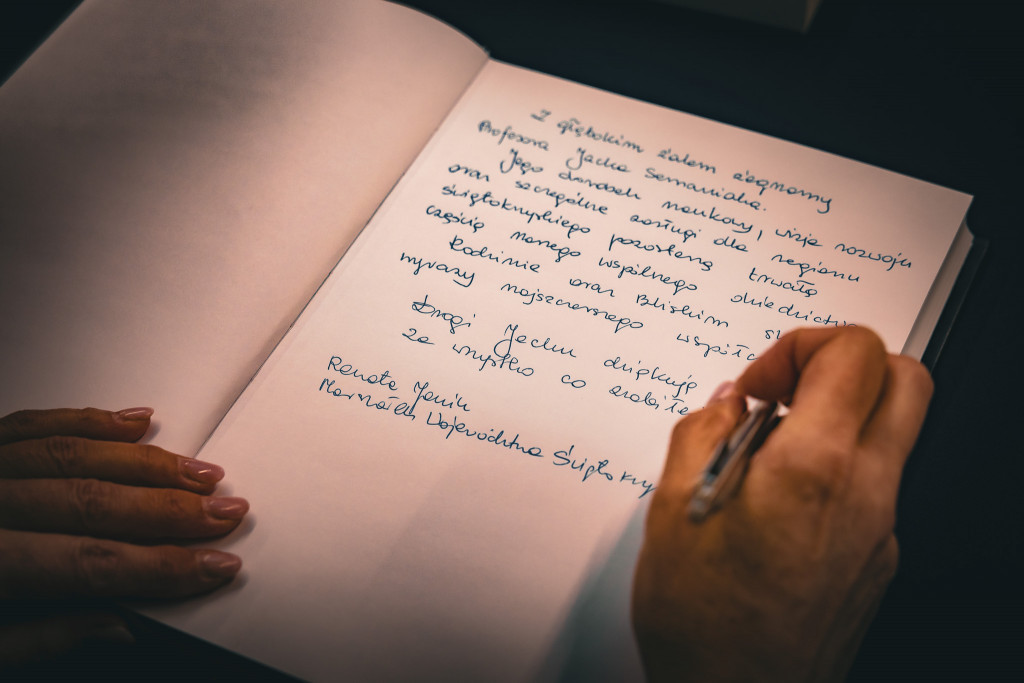 Z głębokim żalem żegnamy
Profesora Jacka Semaniaka.
Jego dorobek naukowy, wizja rozwoju
oraz szczególne zasługi dla regionu
świętokrzyskiego pozostaną trwałą
częścią naszego wspólnego
Rodzinie oraz Bliskim
wyrazy najszczerszego
Drogi Jacku dziękuję
za wszystko co
Renata Janik
Marszałek Województwa